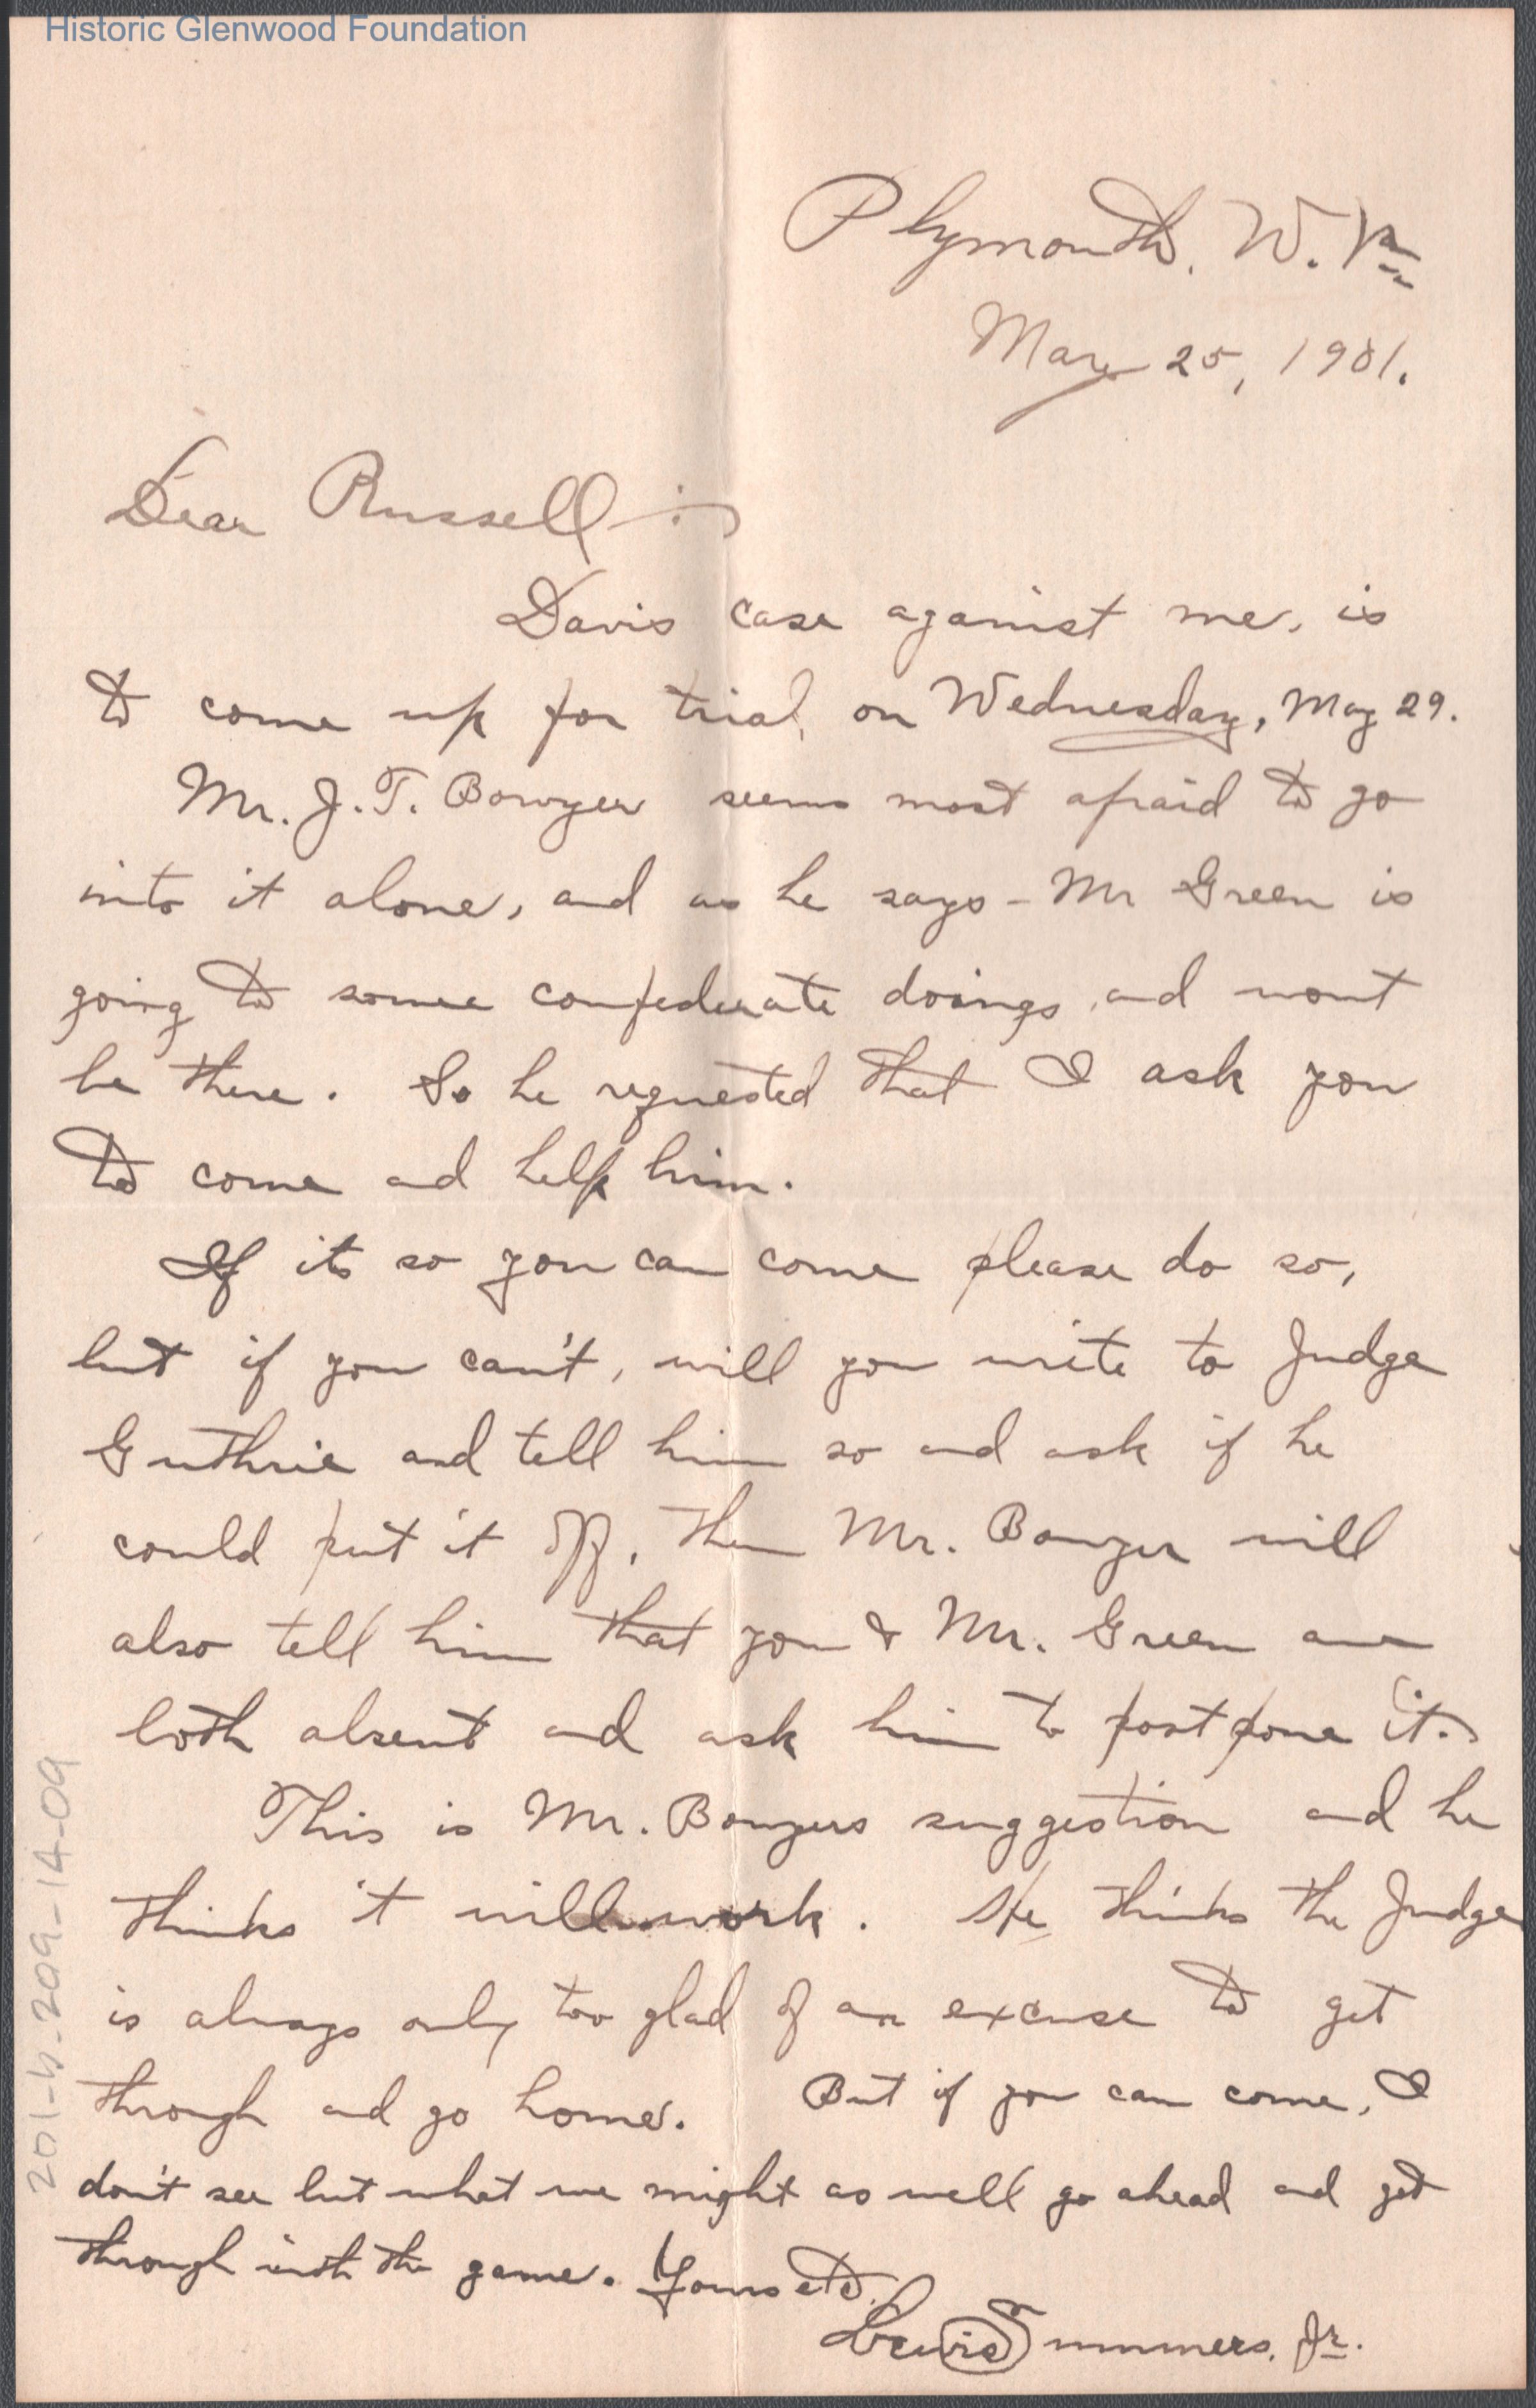 Historic Glenwood Foundation
Plymouth, W. Va
May 25, 1901.
Dear Russell :-
Davis case against me, is
to come up for trial, on Wednesday, May 29.
Mr. J. T. Bowyer seems most afraid to go
into it alone, and as he says - Mr Green is
going to some confederate doings, and wont
be there. So he requested that I ask you
to come and help him.
If its so you can come please do so,
but if you can't, will you write to Judge
Guthrie and tell him so and ask if he
could put it off. Then Mr. Bowyer will
also tell him that you & Mr. Green are
both absent and ask him to postpone it.
This is Mr. Bowyers suggestion and he
thinks it will work. He thinks the Judge
is always only too glad of an excuse to get
through and go home. But if you can come, I
don't see but what we might as well go ahead and get
through with the game. Yours etc.
Lewis Summers, Jr.
201-b.209-14-09